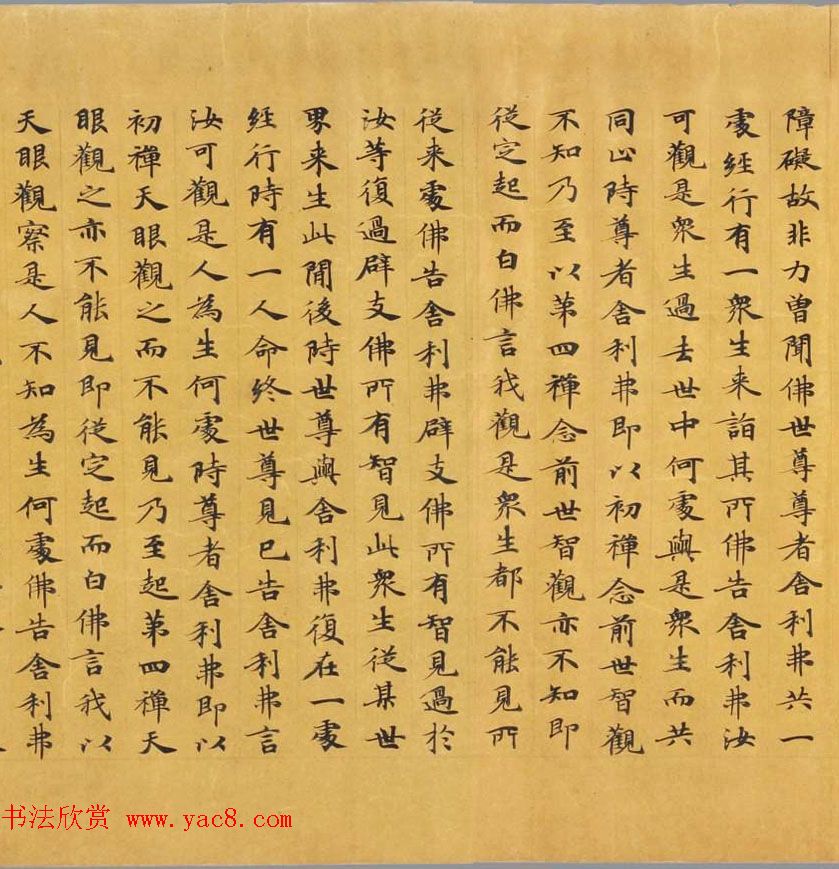 障礙故非力曽聞佛世尊尊者舎利弗共一
處經行有一衆生来詣其所佛告舎利弗汝
可觀是衆生過去世中何處與是衆生而共
同止時尊者舎利弗即以初禪念前世智觀
不知乃至以第四禪念前世智觀亦不知即
從定起而白佛言我觀是衆生都不能見所
從来處佛告舎利弗辟支佛所有智見過於
汝等復過辟支佛所有智見此衆生從某世
界来生此間後時世尊與舎利弗復在一處
經行時有一人命終世尊見已告舎利弗言
汝可觀是人為生何處時尊者舎利弗即以
初禪天眼觀之而不能見乃至起第四禪天
眼觀之亦不能見即從定起而白佛言我以
天眼觀察是人不知為生何處佛告舎利弗
书法欣赏 www.yac8.com